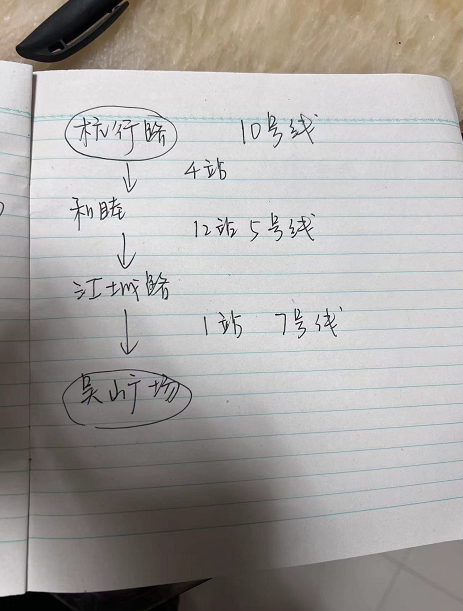 杭行路 10号线
4站
和睦
12站 5号线
江城路
1站 7号线
吴山广场